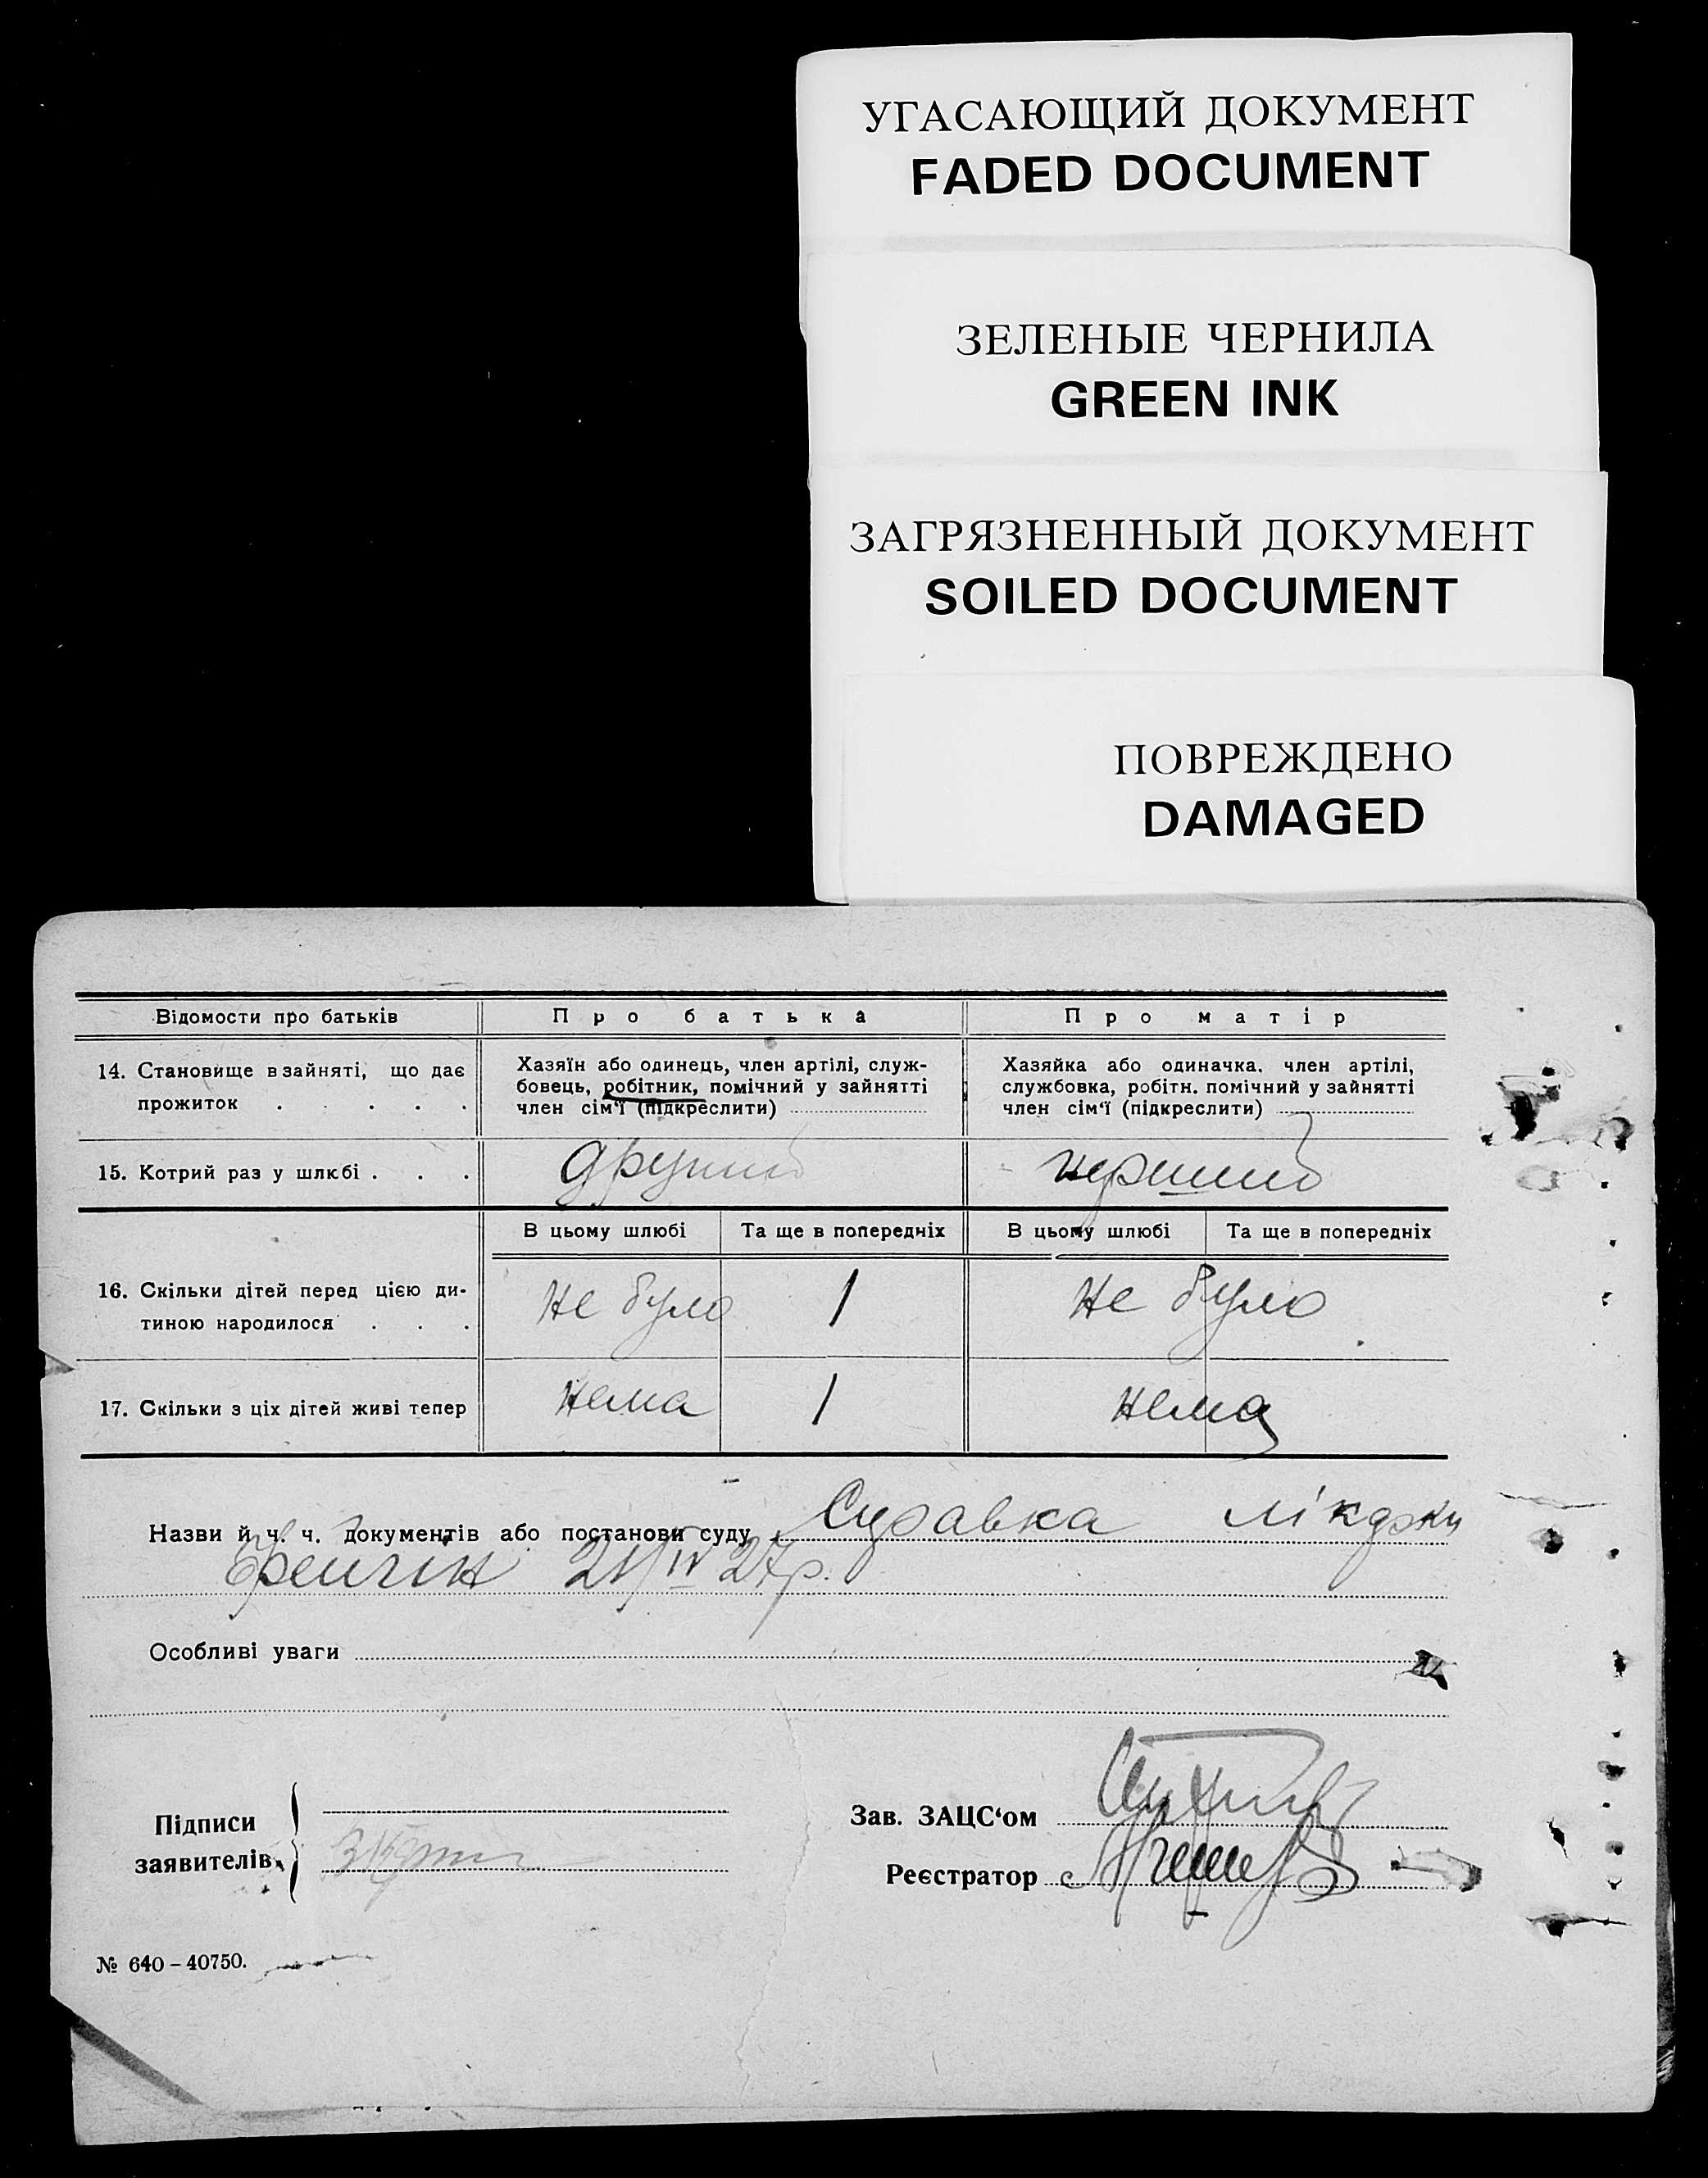 УГАСАЮЩИЙ ДОКУМЕНТ
FADED DOCUMENT
ЗЕЛЕНЫЕ ЧЕРНИЛА
GREEN INK
ЗАГРЯЗНЕННЫЙ ДОКУМЕНТ
SOILED DOCUMENT
ПОВРЕЖДЕНО
DAMAGED
Відомости про батьків Про батька Про матір
14. Становище в зайняті, що дає
прожиток . . . . .
Хазяїн або одинець, член артілі, служ-
бовець, робітник, помічний у зайнятті
член сім'ї (підкреслити)
Хазяйка або одиначка, член артілі,
службовка, робітн. помічний у зайнятті
член сім'ї (підкреслити)
15. Котрий раз у шлюбі . . . другий перший
В цьому шлюбі Та ще в попередніх В цьому шлюбі Та ще в попередніх
16. Скільки дітей перед цією ди-
тиною народилося . . .
не було 1 не було
17. Скільки з ціх дітей живі тепер нема 1 нема
Назви й ч. ч. документів або постанови суду Справка лікарки
21/IV 27р.
Особливі уваги
Підписи
заявителів
Зав. ЗАЦС'ом
Реєстратор
№ 640 – 40750.